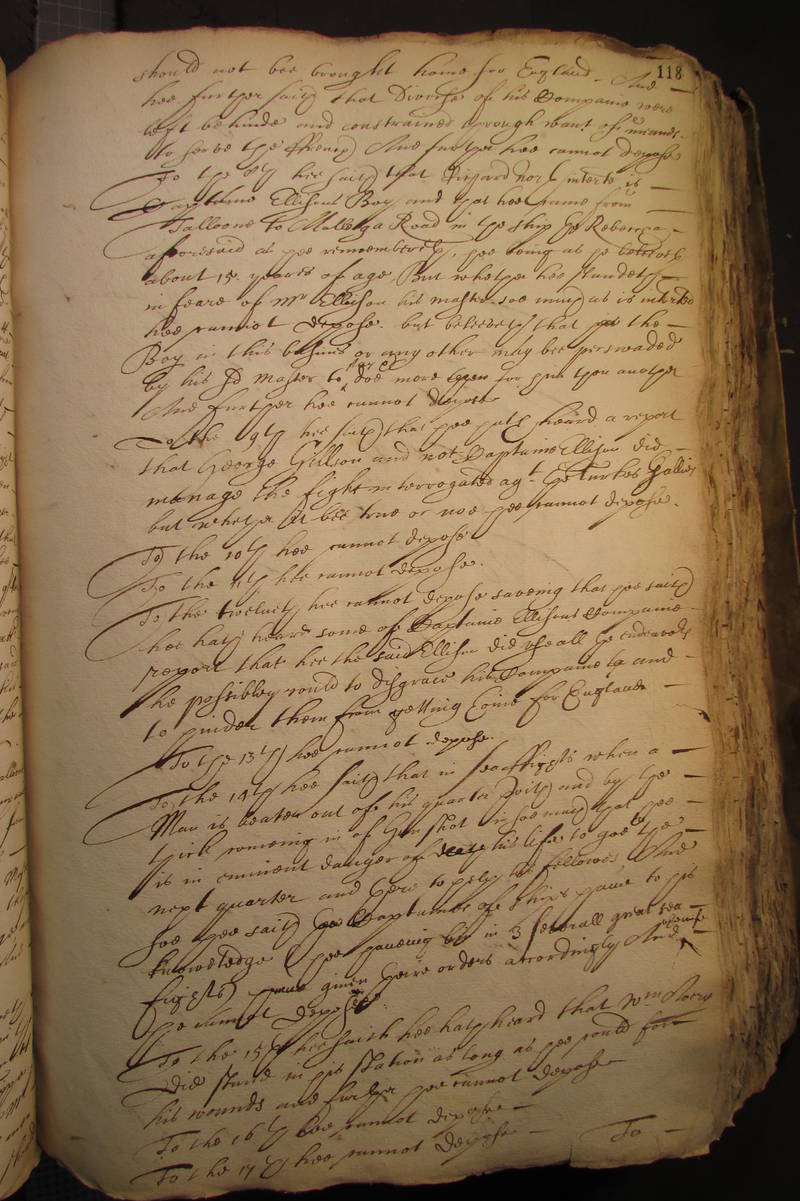 118
should not bee brought home for England - And
hee further saith that diverse of his Companie were
left behinde and constrained through want of meanes
to serve the ffrench And further hee cannot depose
To the 8th hee saith that Richard interr is
Captaine Ellisons Boy and that hee came from
Talloone to Mallega Road in the ship the Rebecca
aforesaid as hee remembreth, hee being as he beleeveth
about 15 yeares of age But whether hee standeth
in feare of Mr Ellison his master soe much as is interrto
hee cannot depose. but beleeveth that the
Boy in this busines or any other may bee perswaded
by his sd Master to doe more for him then another
And further hee cannot depose
To the 9th hee saith that hee hath heard a report
that George Gillson and not Captaine Ellison did
manage the fight interrogated agt the Turkes Gallies
but whether it bee true or noe hee cannot depose.
To the 10th hee cannot depose
To the 11th hee cannot depose.
To the twelveth hee cannot depose saveing that hee saith
hee hath heard some of Captaine Ellisons Companie
report that hee the said Ellison did use all the endeavors
he possibley could to disgrace his Companie and
to hinder them from getting home for England
To the 13th hee cannot depose.
To the 14th hee saith that in seaffights when a
Man is beaten out of his quarter with and by the
thick comeing in of Gunshot in soe much that hee
is in eminent danger of his life to goe to the
next quarter and there to helpe his fellowes, And
soe hee saith the Captaines of ships have to his
knowledge (hee haveing bin in 3 severall great sea
fights) given there orders accordingly And otherwise
he cannot depose
To the 15th hee saith hee hath heard that Wm
did stand in his station as long as hee could for
his wounds and further hee cannot depose
To the 16th hee cannot depose
To the 17th hee cannot depose
To